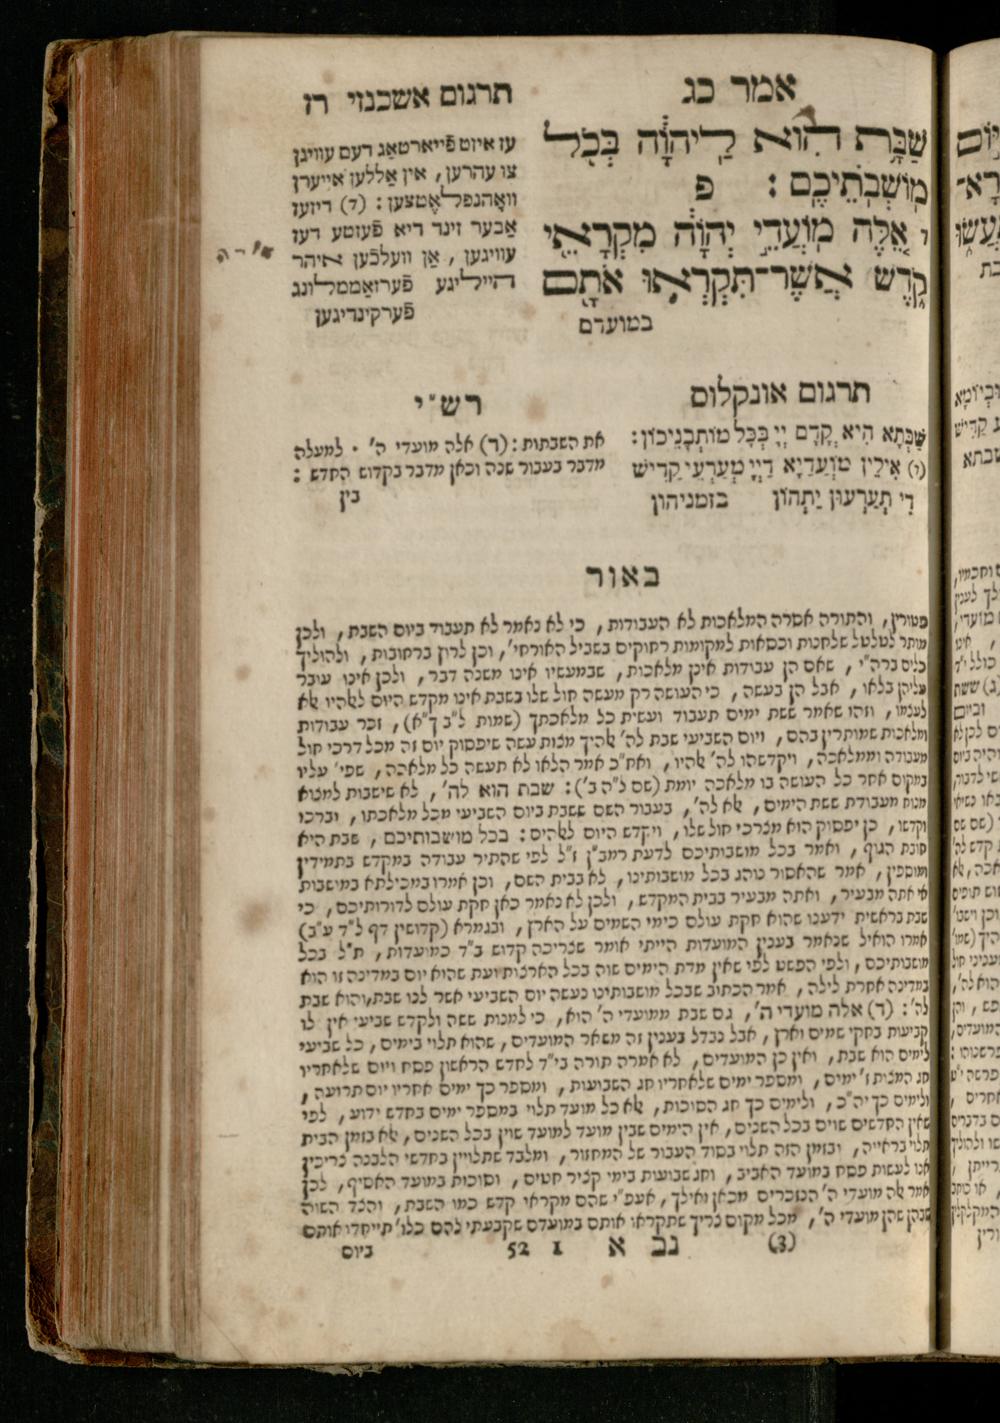 אמר כג
תרגום אשכנזי רז
שַׁבָּת הִוא לַיהוָה בְּכֹל
מוֹשְׁבֹתֵיכֶם : פ
ו אֵלֶּה מוֹעֲדֵי יְהוָה מִקְרָאֵי
קֹדֶשׁ אֲשֶׁר־תִּקְרְאוּ אֹתָם
במועדם
עז איזט פֿייארטאג דעם עוויגן
צו עהרען , אין אַללען אייערן
וואָהנפלאֶטצען : (ד) דיזעז
אַבער זינד דיא פֿעזטע דעז
עוויגען , אַן וועלכֿען איהר
הייליגע פֿערזאַממלונג
פֿערקינדיגען
תרגום אונקלוס
שַׁבְּתָא הִיא קֳדָם יְיָ בְּכֹל מוֹתְבָנֵיכוֹן :
(ו) אִילֵין מוֹעֲדַיָא דַיְיָ מְעָרְעֵי קַדִישׁ
דִי תְעָרְעוּן יַתְהוֹן בזמניהון
רש״י
את השבתות : (ד) אלה מועדי ה' . למעלה
מדבר בעבור שנה וכאן מדבר בקדוש החדש :
בין
באור
פטורין , והתורה אסרה המלאכות לא העבודות , כי לא נאמר לא תעבוד ביום השבת , ולכן
מותר לטלטל שלחנות וכסאות למקומות רחוקים בשביל האורחי' , וכן לרוץ ברחובות , ולהוליך
כלים ברה"י , שאם הן עבודות אינן מלאכות , שבמעשיו אינו משנה דבר , ולכן אינו עובר
עליהן בלאו , אבל הן בעשה , כי העושה רק מעשה חול שלו בשבת אינו מקדש היום לאלהיו אלא
לעצמו , וזהו שאמר ששת ימים תעבוד ועשית כל מלאכתך (שמות ל"ב ך"א) , זכר עבודות
ומלאכות שמותרין בהם , ויום השביעי שבת לה' אלהיך מצות עשה שיפסוק יום זה מכל דרכי חול
מעבודה וממלאכה , ויקדשהו לה' אלהיו , ואח"כ אמר הלאו לא תעשה כל מלאכה , שפי' עליו
במקום אחר כל העושה בו מלאכה יומת (שם ל"ה ב') : שבת הוא לה' , לא שישבות למצוא
מנוח מעבודת ששת הימים , אלא לה' , בעבור השם ששבת ביום השביעי מכל מלאכתו , וברכו
וקדשו , כן יפסוק הוא מצרכי חול שלו , ויקדש היום לאלהים : בכל מושבותיכם , שבת היא
חובת הגוף , ואמר בכל מושבותיכם לדעת רמב"ן ז"ל לפי שהתיר עבודה במקדש בתמידין
ומוספין , אמר שהאסור נוהג בכל מושבותינו , לא בבית השם , וכן אמרו במכילתא במושבות
אי אתה מבעיר , ואתה מבעיר בבית המקדש , ולכן לא נאמר כאן חקת עולם לדורותיכם , כי
שבת בראשית ידענו שהוא חקת עולם כימי השמים על הארץ , ובגמרא (קדושין דף ל"ד ע"ב)
אמרו הואיל שנאמר בענין המועדות הייתי אומר שצריכה קדוש ב"ד כמועדות , ת"ל בכל
מושבותיכם , ולפי הפשט לפי שאין מדת הימים שוה בכל הארצות ועת שהוא יום במדינה זו הוא
במדינה אחרת לילה , אמר הכתוב שבכל מושבותינו נעשה יום השביעי אשר לנו שבת , והוא שבת
לה' : (ד) אלה מועדי ה' , גם שבת ממועדי ה' הוא , כי למנות ששה ולקדש שביעי אין לו
קביעות בחקי שמים וארץ , אבל נבדל בענין זה משאר המועדים , שהוא תלוי בימים , כל שביעי
לימים הוא שבת , ואין כן המועדים , לא אמרה תורה בי"ד לחדש הראשון פסח ויום שלאחריו
חג המצות ז' ימים , ומספר ימים שלאחריו חג השבועות , ומספר כך ימים אחריו יום תרועה ,
ולימים כך יה"כ , ולימים כך חג הסוכות , אלא כל מועד תלוי במספר ימים בחדש ידוע , לפי
שאין החדשים שוים בכל השנים , אין הימים שבין מועד למועד שוין בכל השנים , אלא בזמן הבית
תלוי בראייה , ובזמן הזה תלוי בסוד העבור של המחזור , ומלבד שתלויין בחדשי הלבנה צריכין
אנו לעשות פסח במועד האביב , וחג שבועות בימי קציר חטים , וסוכות במועד האסיף , לכן
אמר אלה מועדי ה' הנזכרים מכאן ואילך , אעפ"י שהם מקראי קדש כמו השבת , והצד השוה
שבהן שהן מועדי ה' , מכל מקום צריך שתקראו אותם במועדם שקבעתי להם כלו' תייחדו אותם
(3) נב א 1 52 ביום